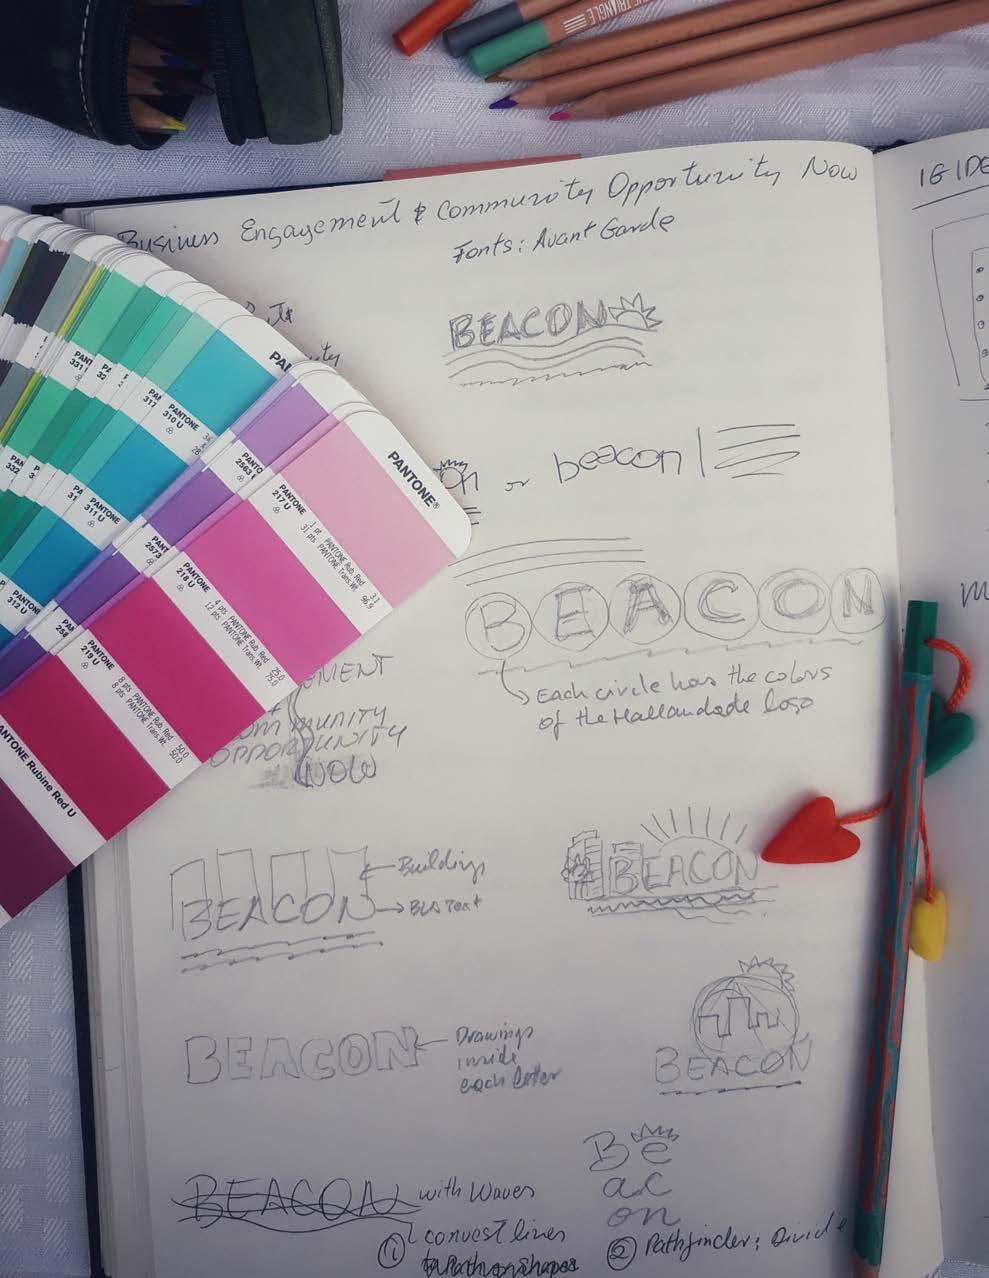 TRIANGLE
Business Engagement & Community Opportunity Now
Fonts: Avant Garde
BEACON
on or beacon
BEACON
Each circle has the colors
of the Hallandade logo
EMENT
OMMUNITY
OPPORTUNITY
NOW
BEACON
Buildings
BEACON
BEACON
Drawings
inside
each letter
BEACON
BEACON with Waves
① convest lines
Be
ac
on
② Pathfinder: Divide
PANTONE®
PANTONE
217 U
1 pt. PANTONE Rub. Red 3.1
31 pts PANTONE Trans.Wt. 96.9
PANTONE
218 U
4 pts PANTONE Rub. Red 25.0
12 pts PANTONE Trans.Wt. 75.0
PANTONE
219 U
8 pts PANTONE Rub. Red 50.0
8 pts PANTONE Trans.Wt. 50.0
PANTONE Rubine Red U
PANTONE
310 U
PANTONE
311 U
PANTONE
312 U
PANTO
2563
PANTO
2573
PAN
331
PAN
332
PAN
317